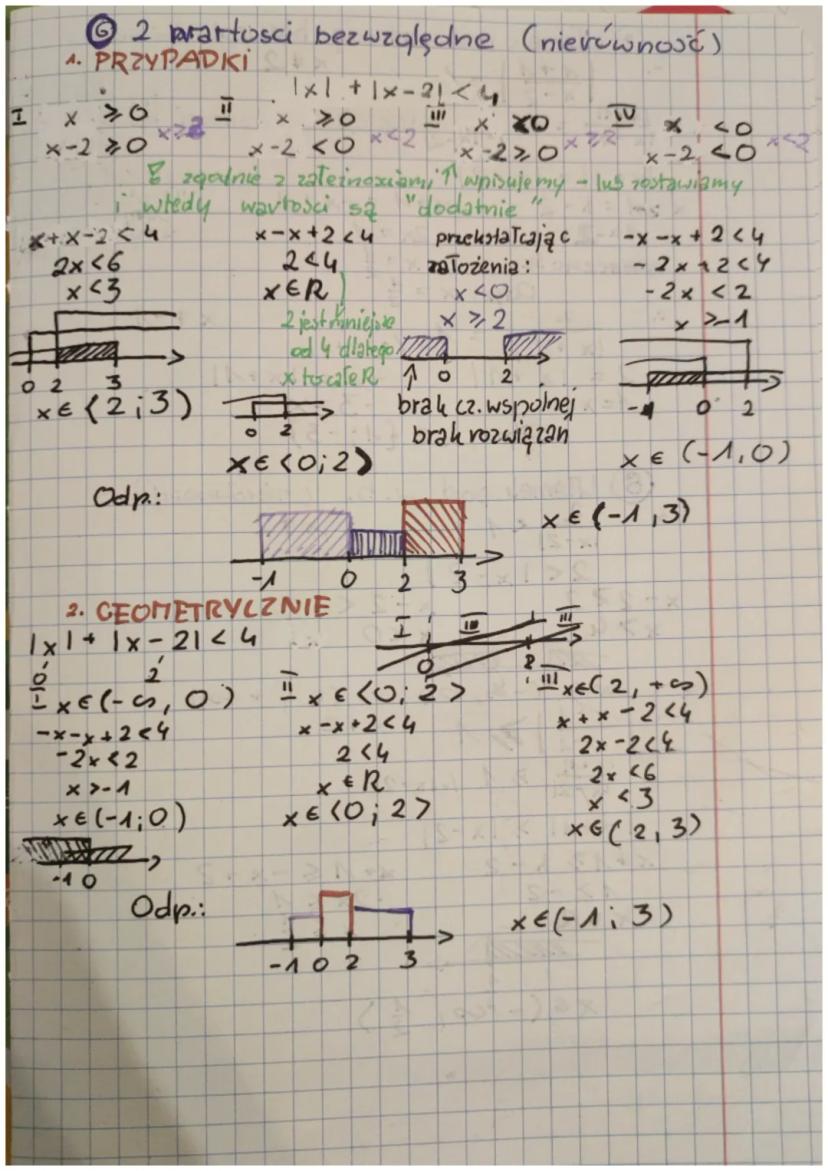 ⑥ 2 wartosci bezwzględne (nierówność)
1. PRZYPADKI
|x| + |x-2| < 4
I x ≥0 II x ≥0 III x <0 IV x <0
x-2 ≥0 x≥2 x-2 <0 x<2 x-2≥0 x≥2 x-2 <0 x<2
zgodnie z zależnościami ↑ wpisujemy - lub zostawiamy
i wtedy wartości są "dodatnie"
x+x-2<4 x-x+2<4 przekształcając -x-x+2<4
2x<6 2<4 założenia: -2x+2<4
x<3 x∈R x<0 -2x <2
2 jest mniejsze x ≥2 x >-1
od 4 dlatego
x to całe R
0 2 3 0 2 ↑ 0 2 -1 0 2
x∈⟨2;3) brak cz. wspólnej
brak rozwiązań
x∈⟨0;2) x∈(-1,0)
Odp.: x∈(-1,3)
-1 0 2 3
2. GEOMETRYCZNIE
|x|+|x-2|<4 I II III
0 2 0 2
I x∈(-∞,0) II x∈⟨0;2⟩ III x∈(2,+∞)
-x-x+2<4 x-x+2<4 x+x-2<4
-2x<2 2<4 2x-2<4
x>-1 x∈R 2x<6
x∈(-1;0) x∈⟨0;2⟩ x<3
x∈(2,3)
-1 0
Odp.: x∈(-1;3)
-1 0 2 3